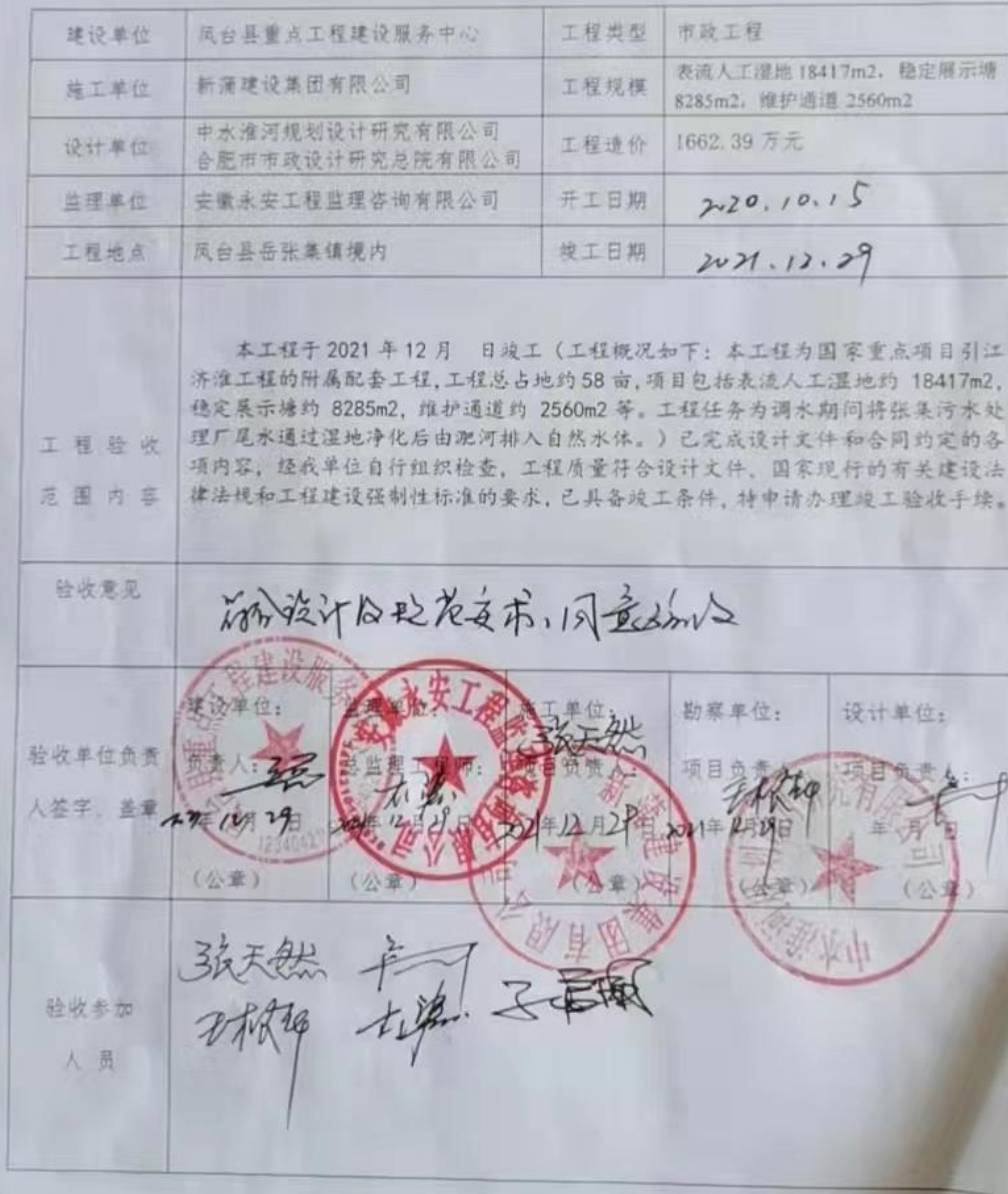 建设单位 凤台县重点工程建设服务中心 工程类型 市政工程
施工单位 新蒲建设集团有限公司 工程规模 表流人工湿地 18417m2, 稳定展示塘
8285m2, 维护通道 2560m2
设计单位 中水淮河规划设计研究有限公司
合肥市市政设计研究总院有限公司 工程造价 1662.39 万元
监理单位 安徽永安工程监理咨询有限公司 开工日期 2020.10.15
工程地点 凤台县岳张集镇境内 竣工日期 2021.12.29
工程验收
范围内容
本工程于 2021 年 12 月 日竣工（工程概况如下：本工程为国家重点项目引江
济淮工程的附属配套工程,工程总占地约 58 亩,项目包括表流人工湿地约 18417m2,
稳定展示塘约 8285m2, 维护通道约 2560m2 等。工程任务为调水期间将张集污水处
理厂尾水通过湿地净化后由淝河排入自然水体。）已完成设计文件和合同约定的各
项内容，经我单位自行组织检查，工程质量符合设计文件、国家现行的有关建设法
律法规和工程建设强制性标准的要求,已具备竣工条件,特申请办理竣工验收手续。
验收意见 符合设计及规范要求、同意验收
验收单位负责
人签字、盖章
建设单位： 监理单位： 施工单位： 勘察单位： 设计单位：
张天然
负责人： 总监理工程师： 项目负责人： 项目负责人 项目负责人：
年 12 月 29 2021年 12 月 29 日 2021年 12 月 29 日 2021年 12 月 29 日 年 月 日
（公章） （公章） （公章） （公章） （公章）
安徽永安工程监理咨询有限公司
新蒲建设集团有限公司
验收参加
人员
张天然